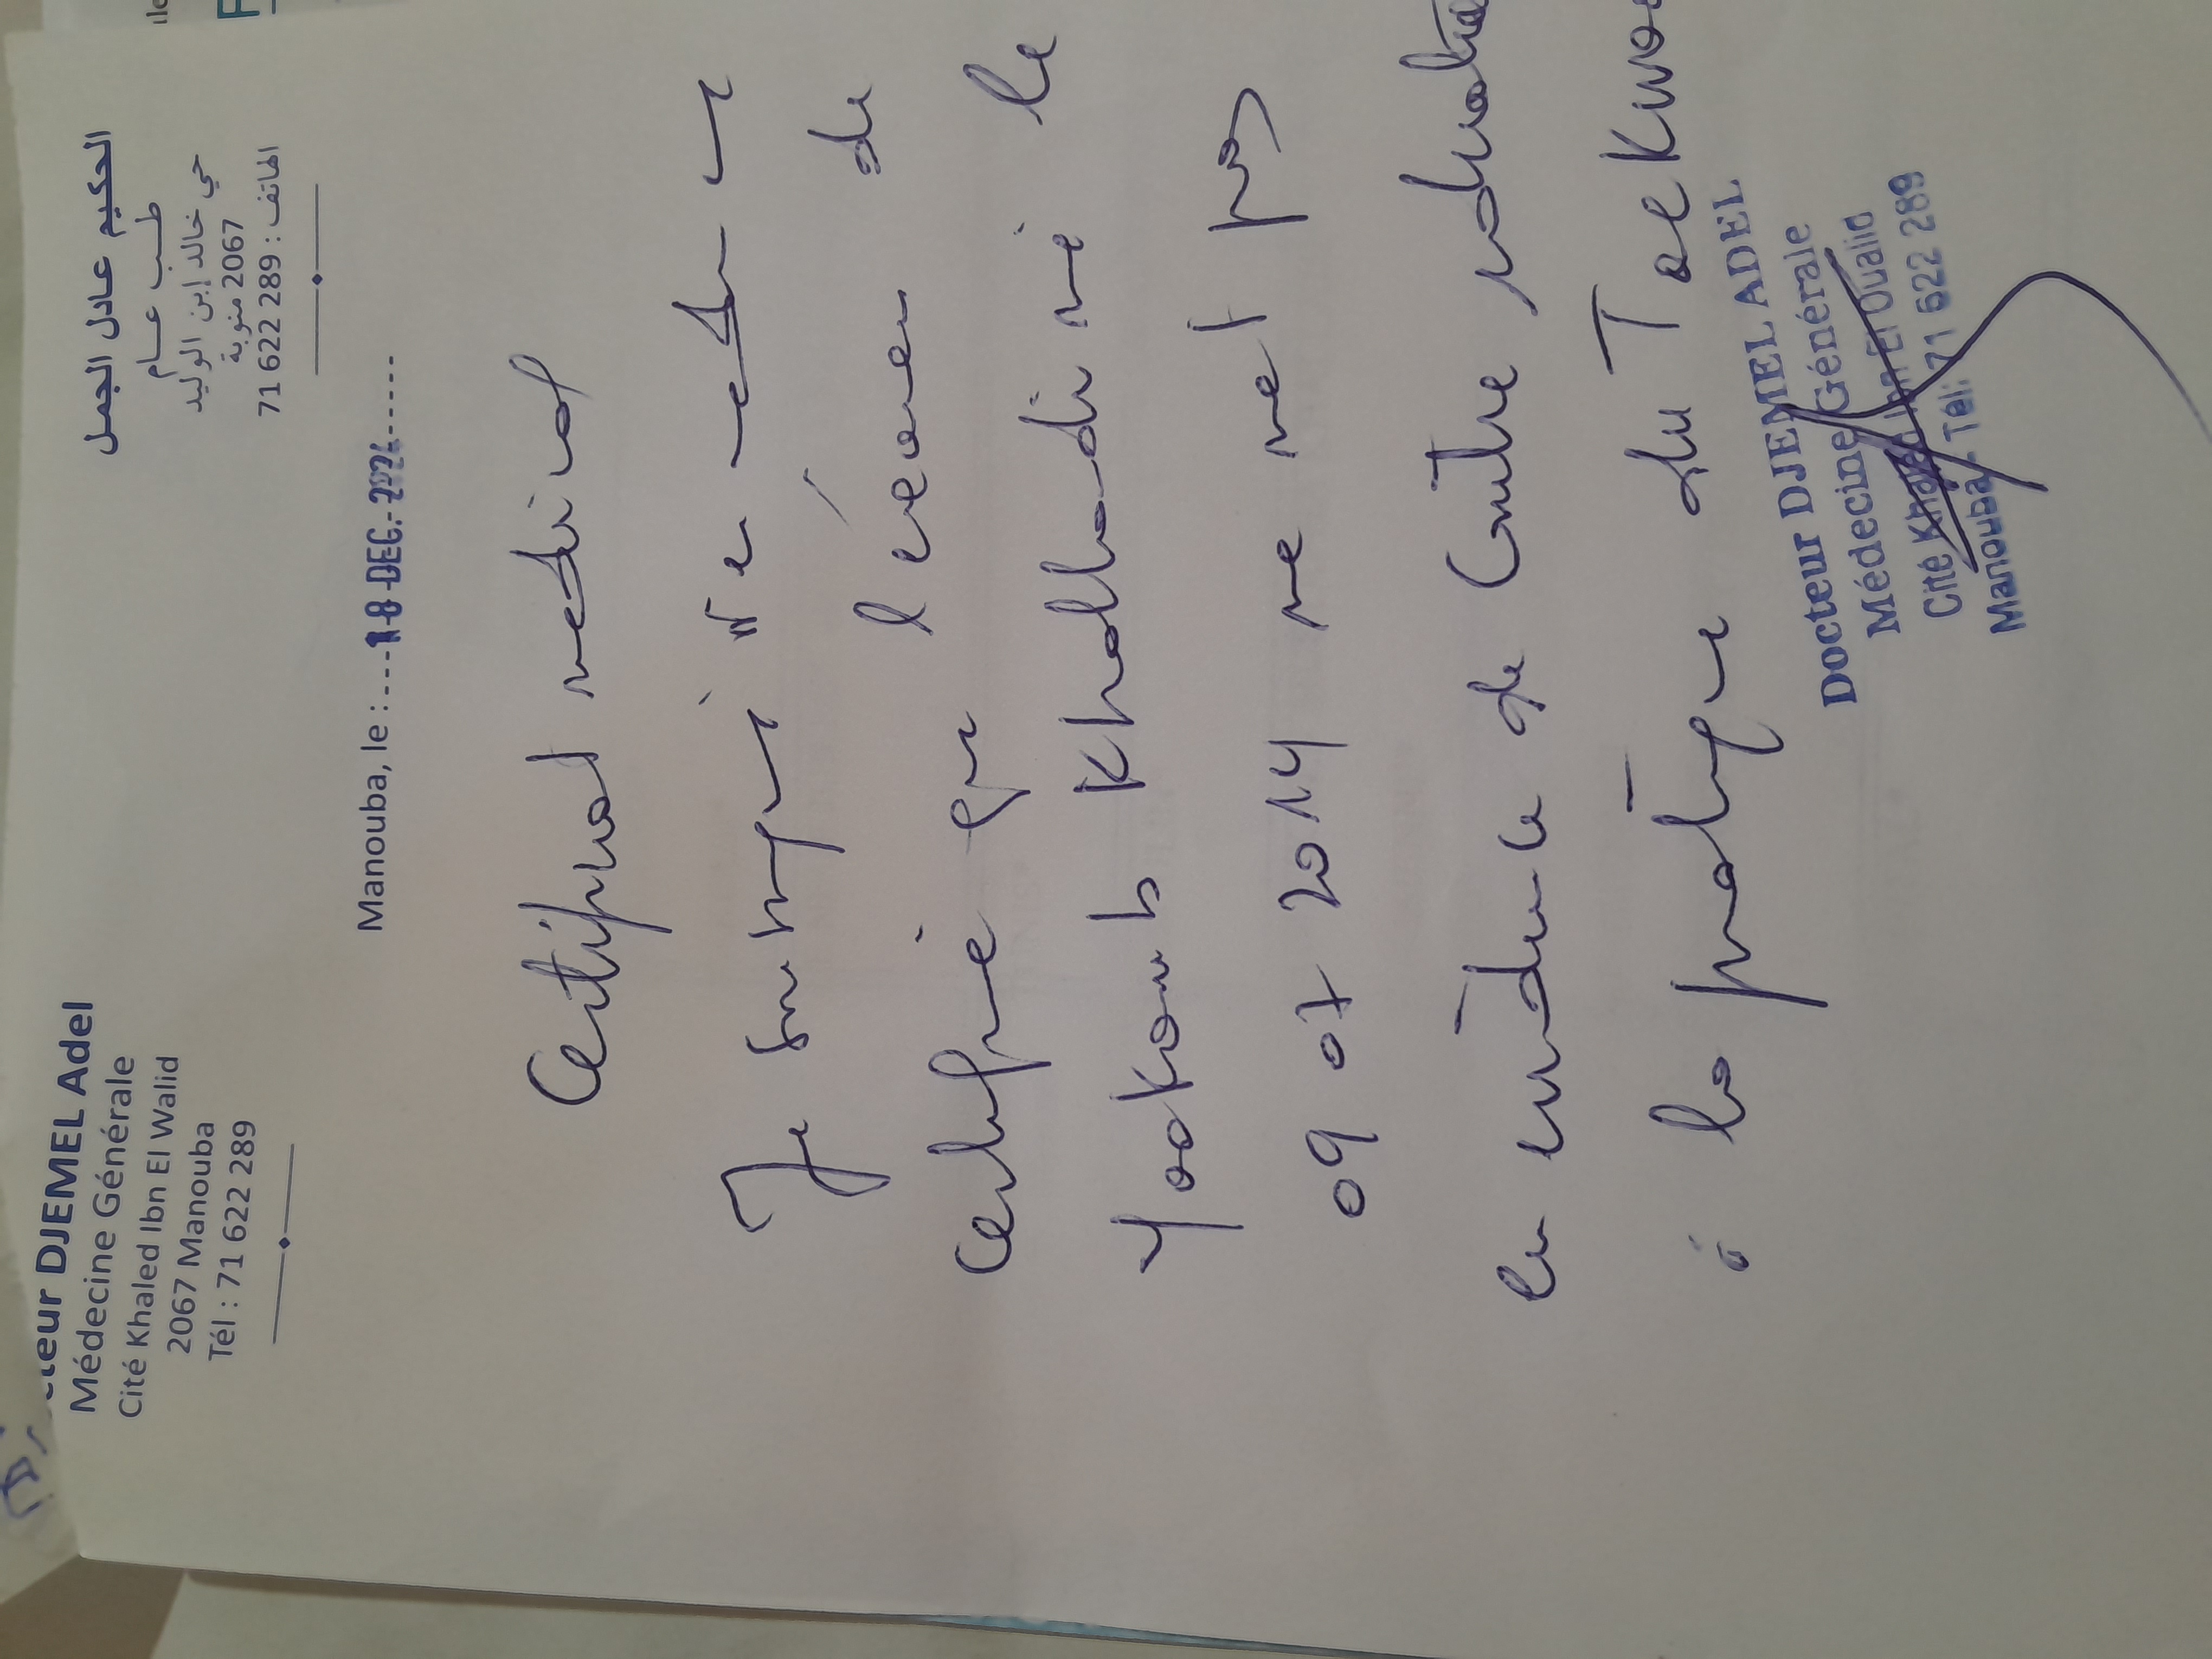 Docteur DJEMEL Adel
Médecine Générale
Cité Khaled Ibn El Walid
2067 Manouba
Tél : 71 622 289
الحكيم عادل الجمل
طب عام
حي خالد إبن الوليد
2067 منوبة
الهاتف : 71 622 289
Manouba, le : 18 DEC. 2024
Certificat medical
Je soussigné
certifie que l'examen de
Yaakoub Khalladi né le
09 07 2014 ne met pas
en évidence de Contre indicatio
à la pratique du Taekwo
Docteur DJEMEL ADEL
Médecine Générale
Cité Khaled Ibn El Oualid
Manouba - Tél: 71 622 289